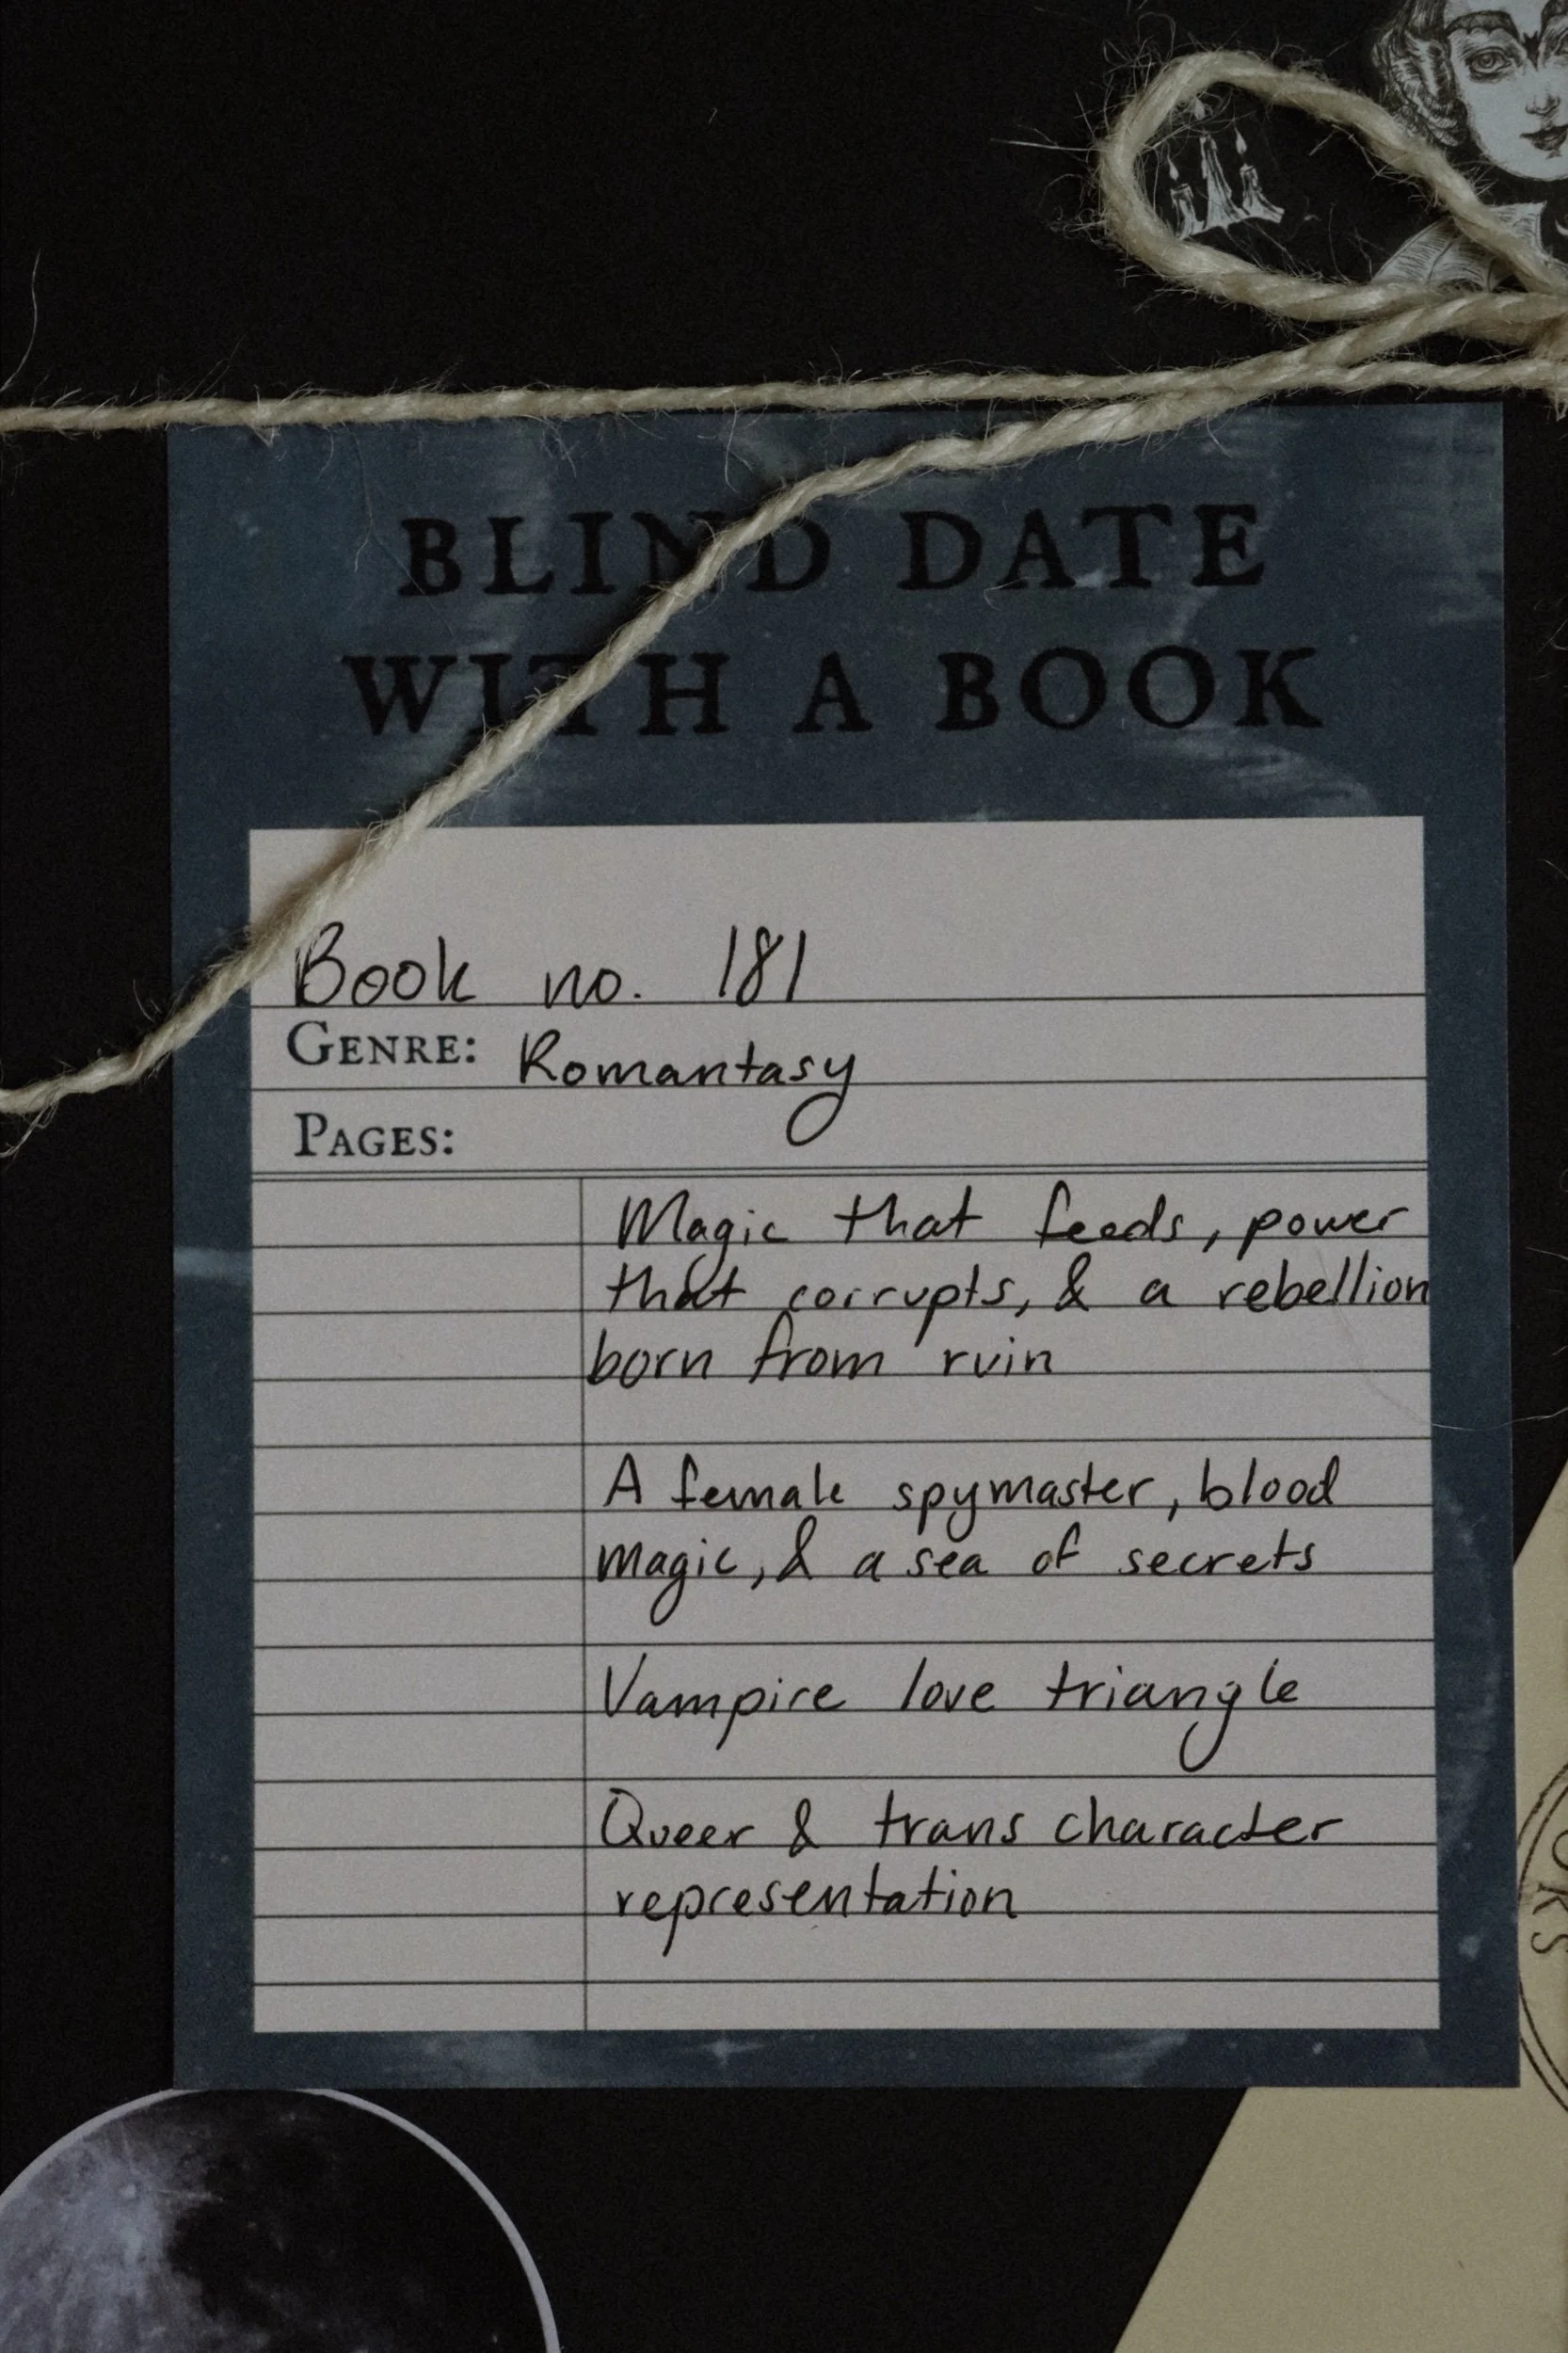 BLIND DATE
WITH A BOOK
Book no. 181
GENRE: Romantasy
PAGES:
Magic that feeds, power
that corrupts, & a rebellion
born from ruin
A female spymaster, blood
magic, & a sea of secrets
Vampire love triangle
Queer & trans character
representation